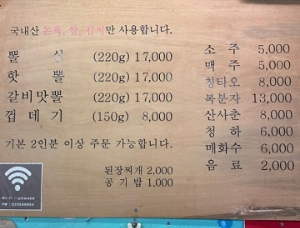 국내산 돈육, 쌀, 김치만 사용합니다.
뽈 살 (220g) 17,000
핫 뽈 (220g) 17,000
갈비맛뽈 (220g) 17,000
껍 데 기 (150g) 8,000
기본 2인분 이상 주문 가능합니다.
된장찌개 2,000
공 기 밥 1,000
소 주 5,000
맥 주 5,000
칭타오 8,000
복분자 13,000
산사춘 8,000
청 하 6,000
매화수 6,000
음 료 2,000